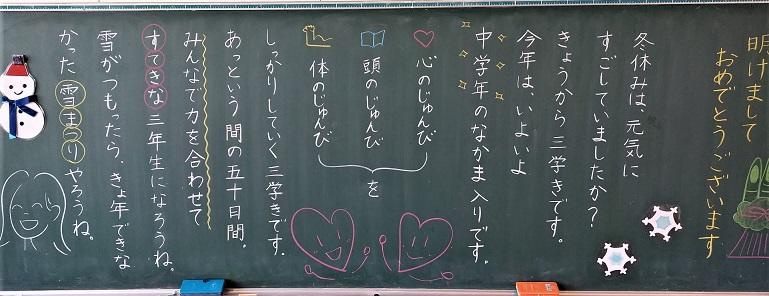 明けまして
おめでとうございます
冬休みは、元気に
すごしていましたか？
きょうから三学きです。
今年は、いよいよ
中学年のなかま入りです。
心のじゅんび
頭のじゅんび
体のじゅんび
を
しっかりしていく三学きです。
あっという間の五十日間。
みんなで力を合わせて
すてきな三年生になろうね。
雪がつもったら、きょ年できな
かった雪まつりやろうね。